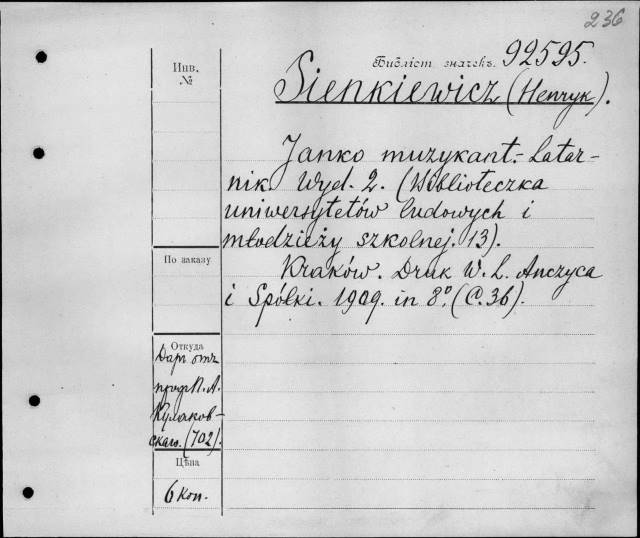 236
Инв.
№
Библіот. значекъ. 92595.
Sienkiewicz (Henryk).
Janko muzykant.- Latar-
nik. Wyd. 2. (Biblioteczka
uniwersytetów ludowych i
młodzieży szkolnej. 13).
Kraków. Druk W. L. Anczyca
i Spółki. 1909. in 8º. (С. 36).
По заказу
Откуда
Даръ отъ
проф. П. А.
Кулаков-
скаго. (702).
Цѣна
6 коп.